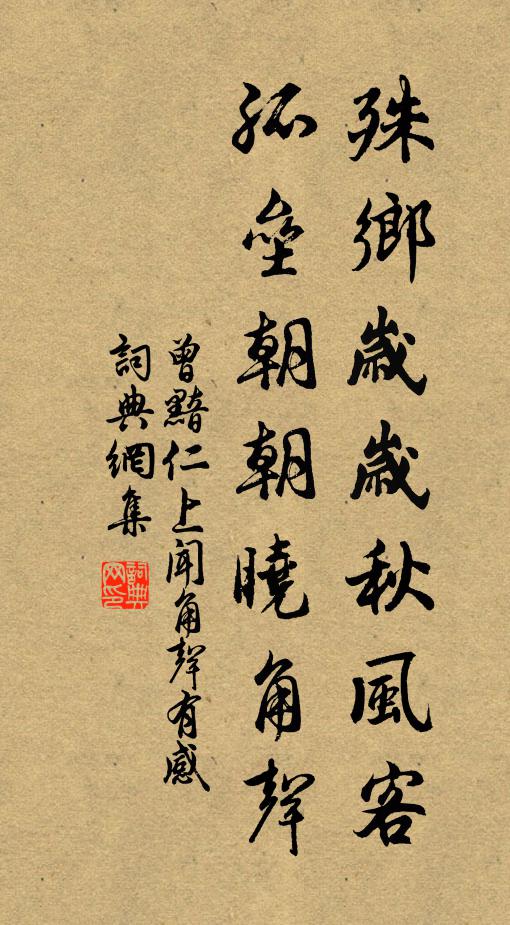 殊鄉歲歲秋風客
孤壘朝朝曉角聲
曾黯仁上聞角聲有感
詞典網集
詞典网印